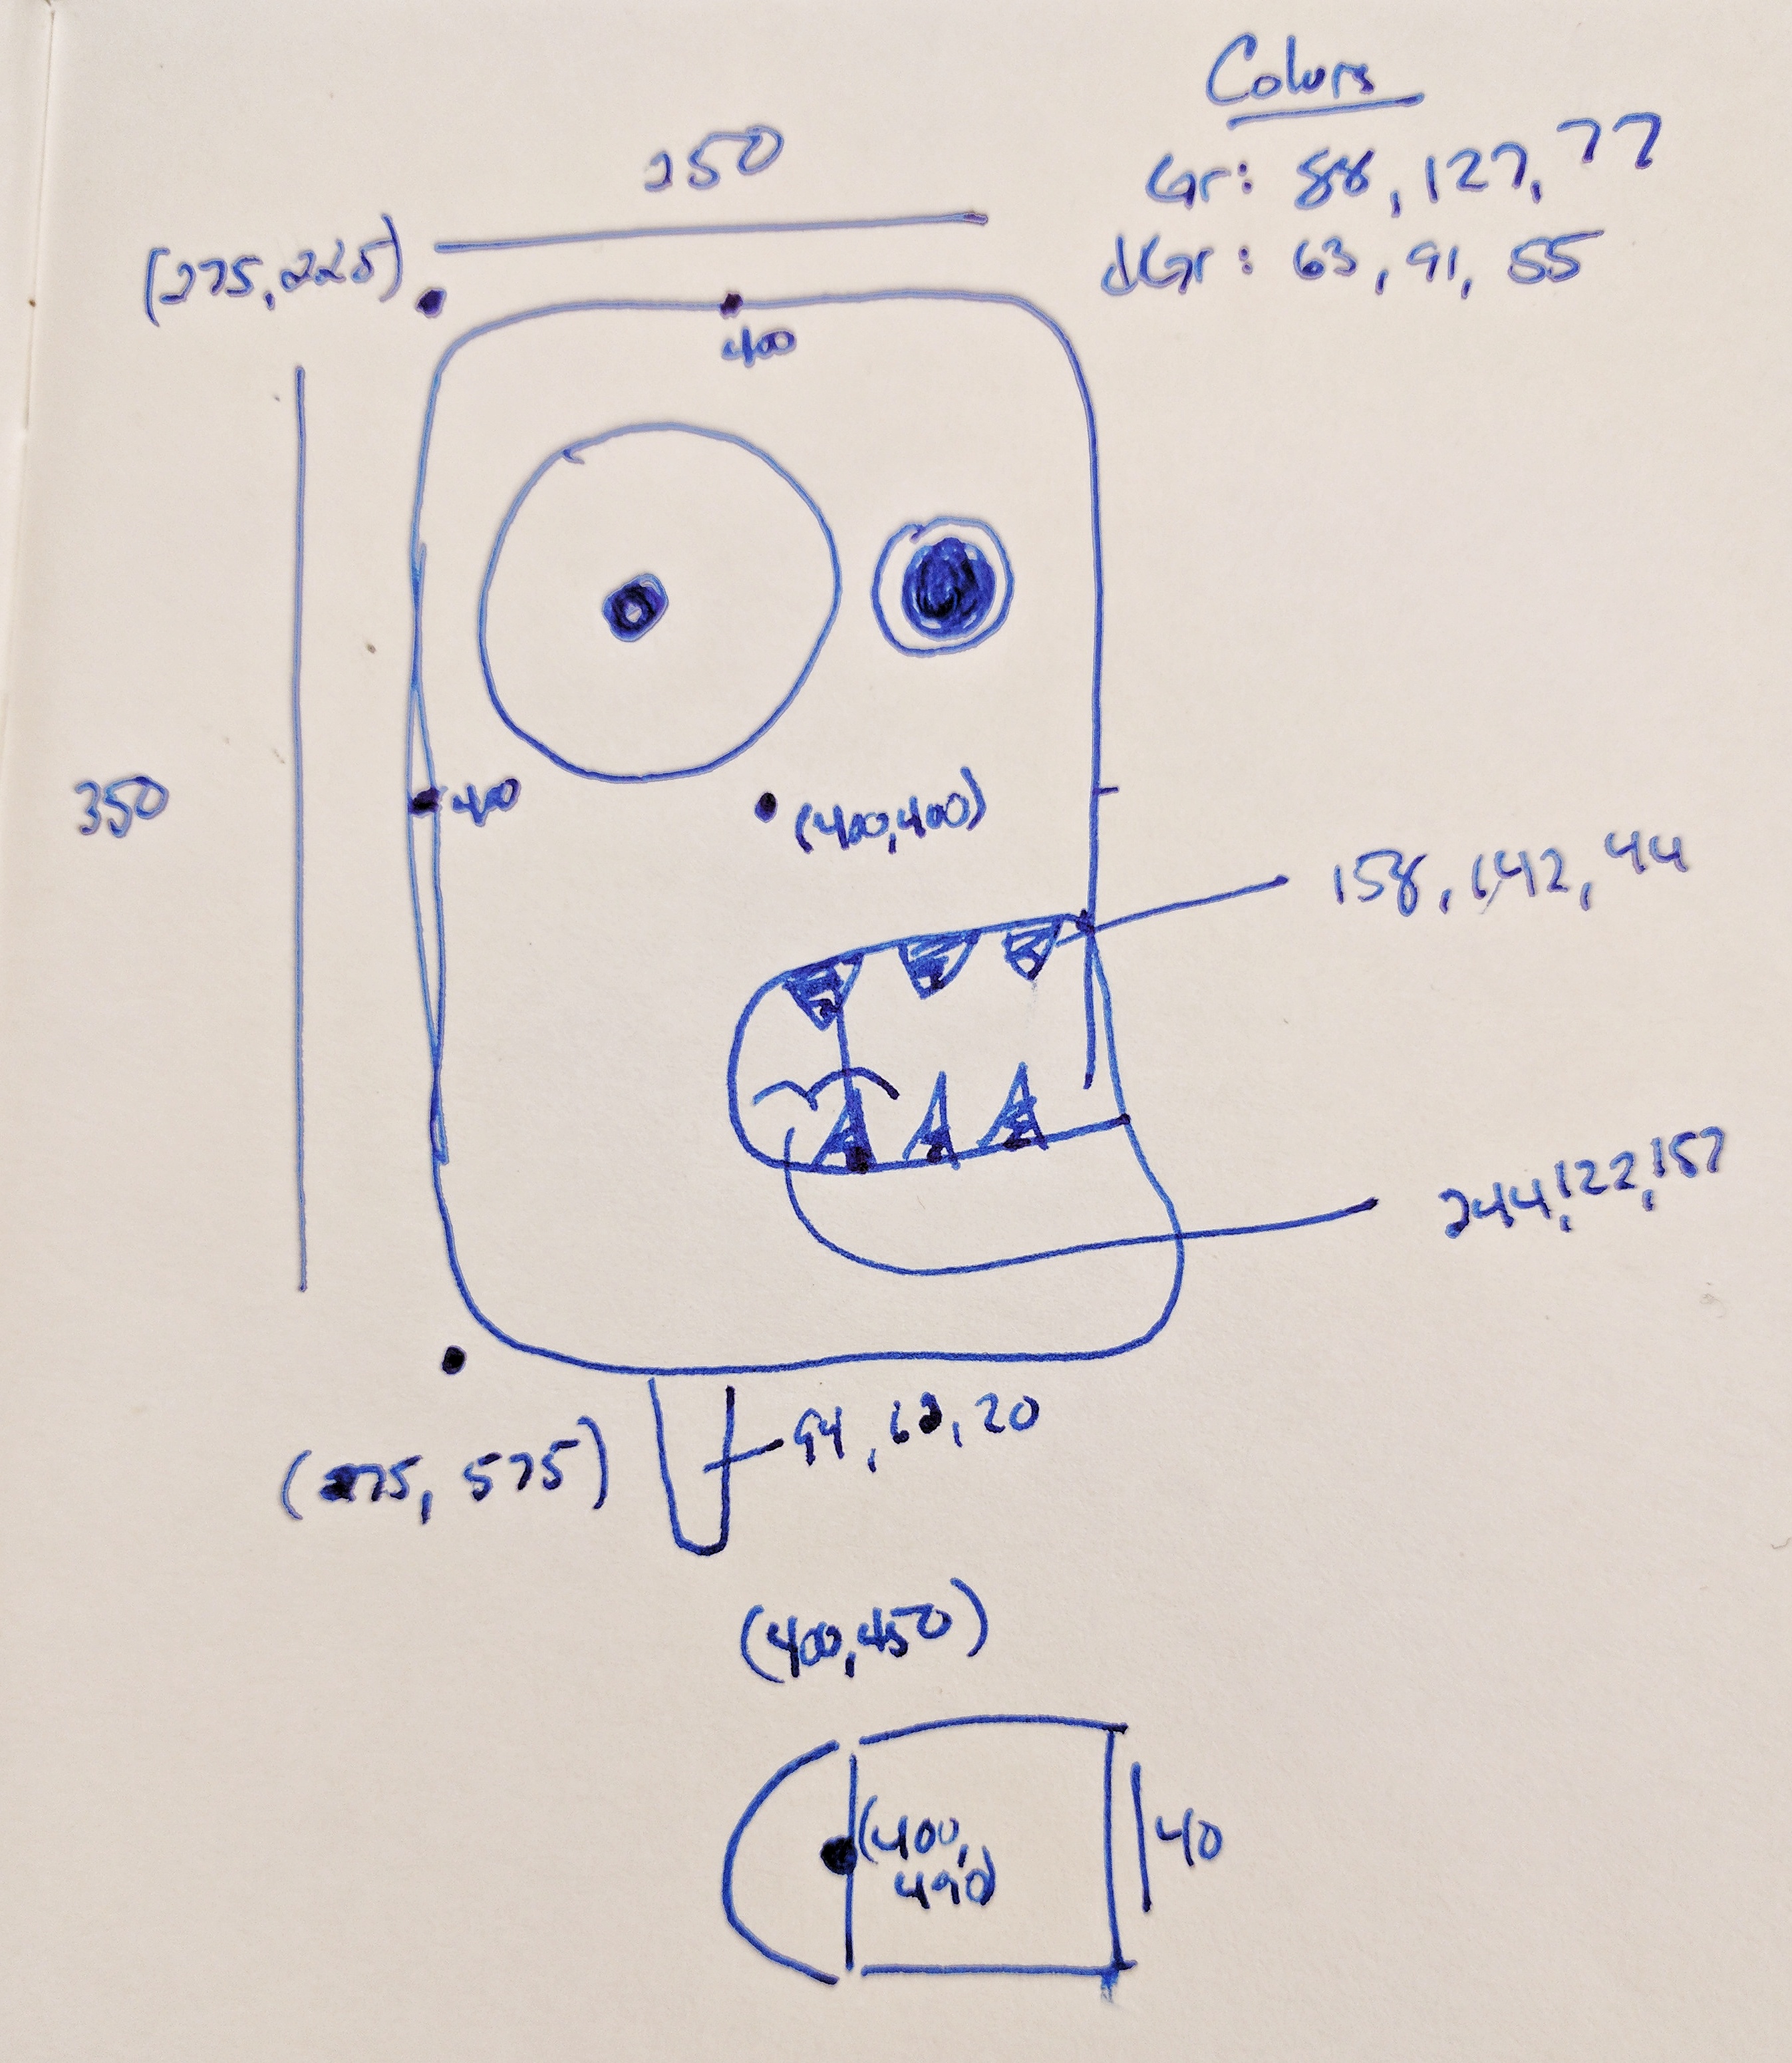 Colors
Gr: 88, 127, 77
dGr: 63, 91, 55
250
(275, 225)
400
350
400
(400,400)
158, 142, 44
244, 122, 157
(275, 575)
(400,450)
(400,
490)
40